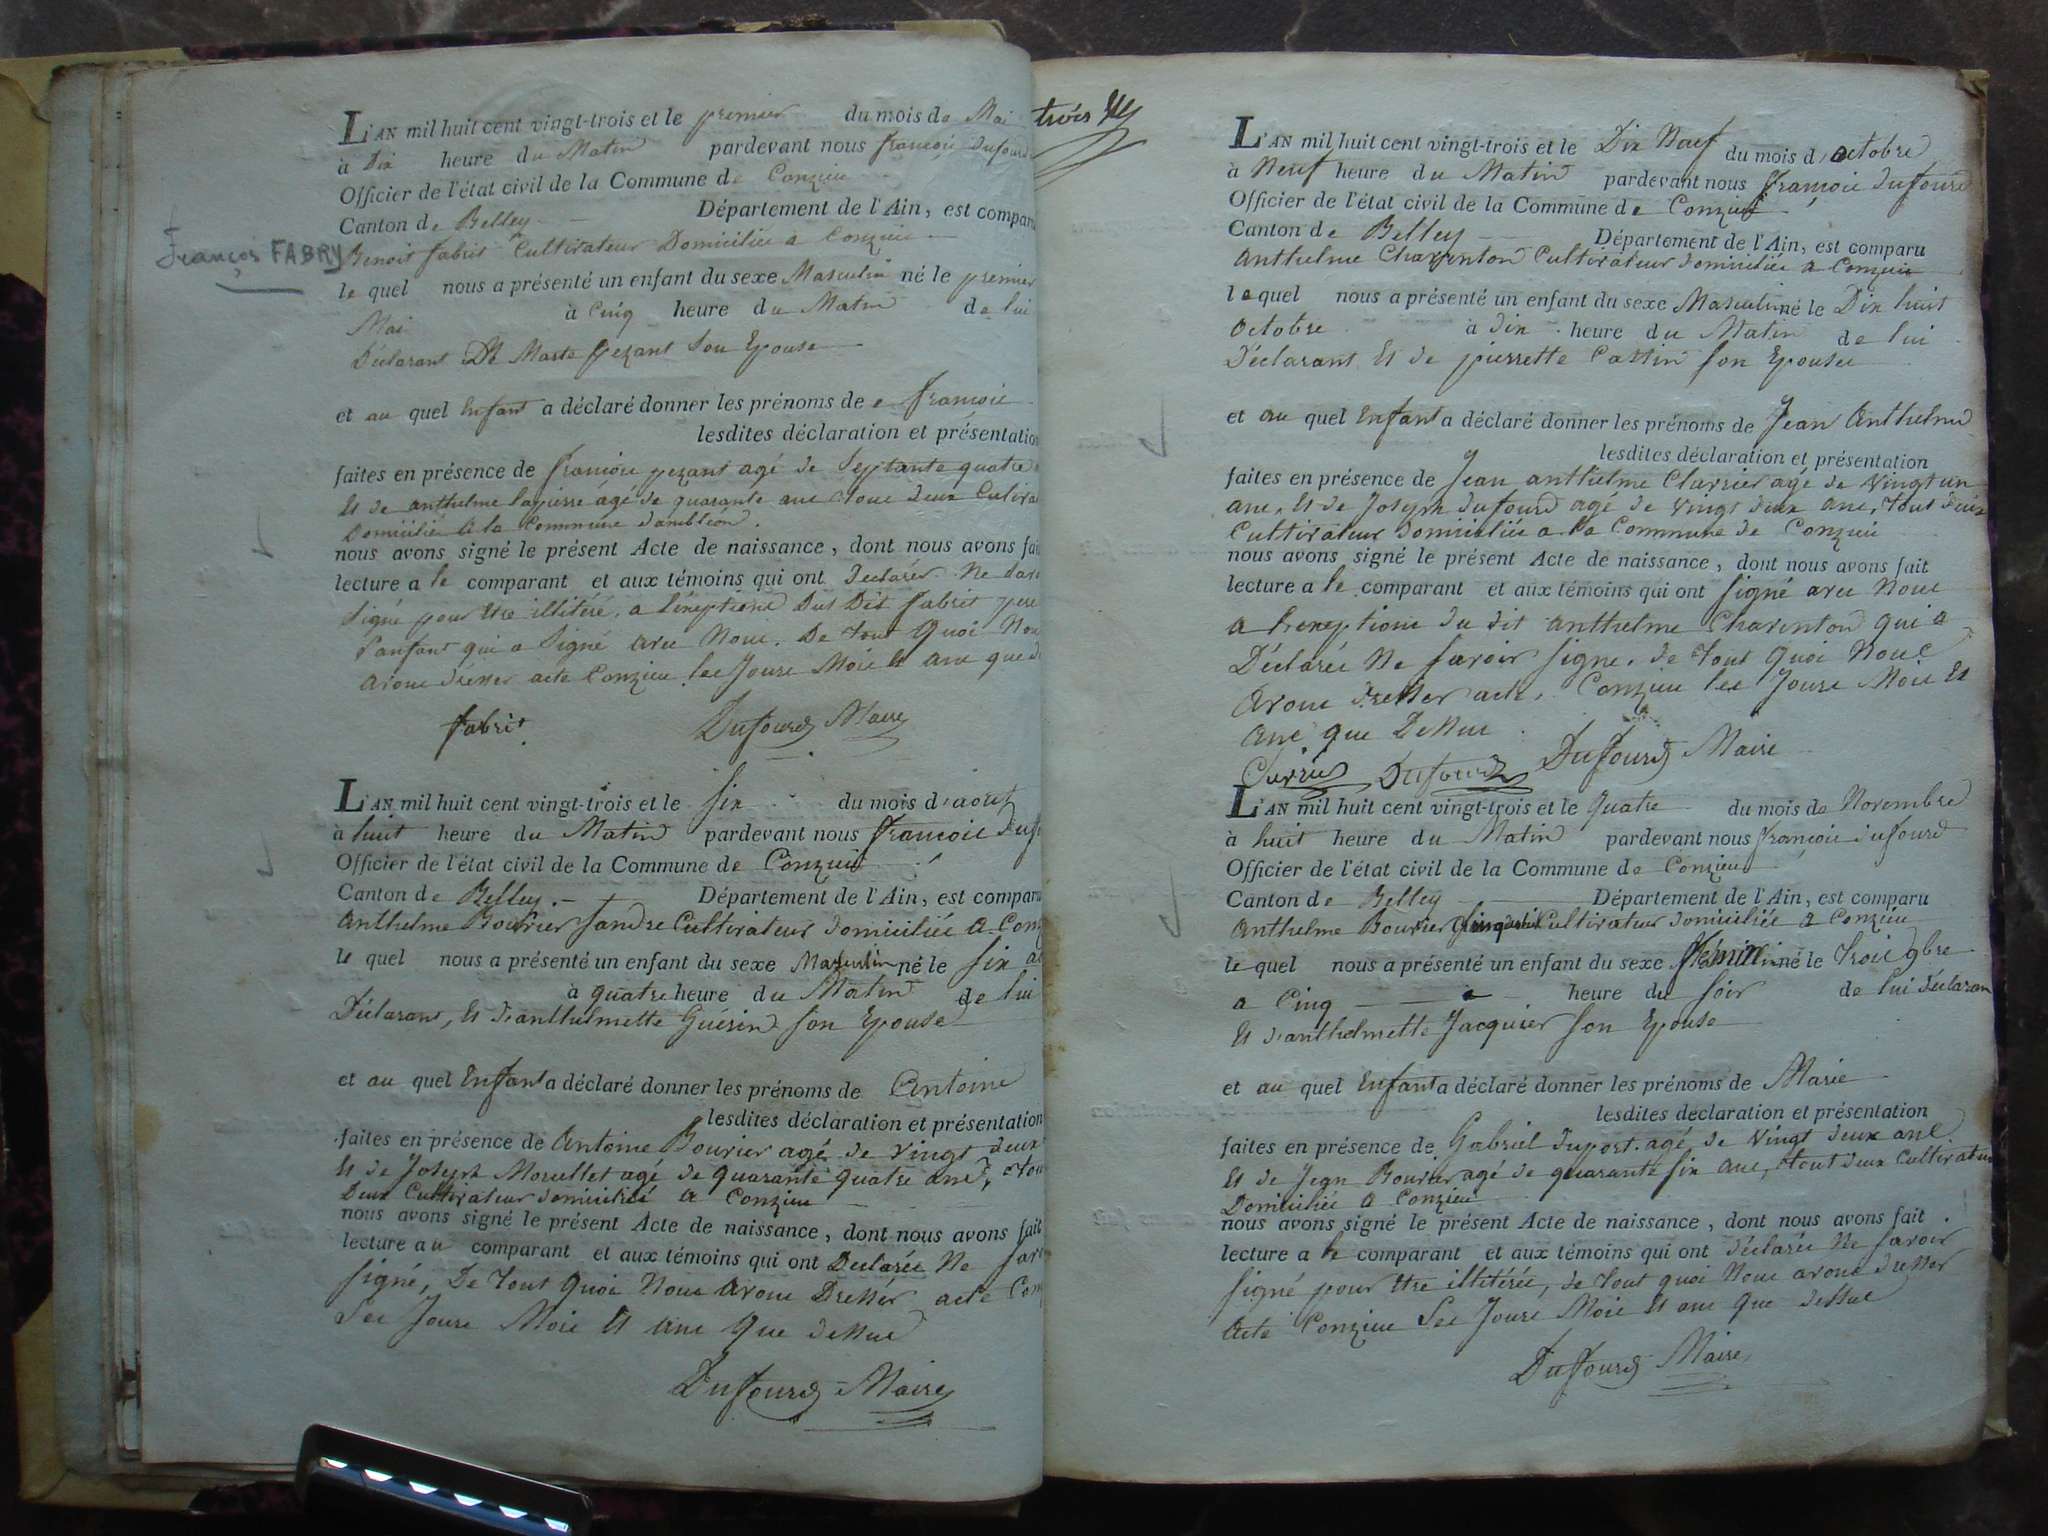 L'AN mil huit cent vingt-trois et le premier du mois de Mai
à Dix heure du Matin pardevant nous françois Dufourd
Officier de l'état civil de la Commune de Conzieu
Canton de Belley Département de l'Ain, est comparu
François FABRY
Benoit fabrit Cultivateur Domicilié a Conzieu
le quel nous a présenté un enfant du sexe Masculin né le premier
Mai à Cinq heure du Matin de lui
Déclarant De Marte pezant Son Epouse
et au quel Enfant a déclaré donner les prénoms de francois
lesdites déclaration et présentation
faites en présence de francois pezant agé de Septante quatre
Et de anthelme lapierre agé de quarante ans tous deux Cultiva
Domicilié a la Commune d'ambléon.
nous avons signé le présent Acte de naissance, dont nous avons fait
lecture a le comparant et aux témoins qui ont Declarér Ne savoi
Signé pour être illitéré, a l'éxeptiond Dus Dit fabrit pere
l'anfant qui a Signé avec Nous. De tout Quoi Nous
avons drésser acte Conzieu les Jours Mois Et ans que de
fabrit Dufourd Maire
L'AN mil huit cent vingt-trois et le six du mois d'aout
à huit heure du Matin pardevant nous francois Dufo
Officier de l'état civil de la Commune de Conzieu
Canton de Belley Département de l'Ain, est comparu
Anthelme Bouvier Sandre Cultivateur domicilié a Conz
le quel nous a présenté un enfant du sexe Masculin né le six ao
à quatre heure du Matin de lui
Déclarant, Et d'anthelmette Guérin son Epouse
et au quel Enfant a déclaré donner les prénoms de Antoine
lesdites déclaration et présentation
faites en présence de Antoine Bouvier agé de vingt deux
Et de Joseph Morellet agé de quarante quatre ans, tou
Deux Cultivateur domicilié a Conzieu
nous avons signé le présent Acte de naissance, dont nous avons fait
lecture au comparant et aux témoins qui ont Declarée Ne savo
signé, De tout Quoi Nous avons Dressér acte Con
Les Jours Mois Et ans Que dessus
Dufourd Maire
trois
L'AN mil huit cent vingt-trois et le Dix Neuf du mois d'octobre
à Neuf heure du Matin pardevant nous françois dufourd
Officier de l'état civil de la Commune de Conzieu
Canton de Belley Département de l'Ain, est comparu
Anthelme Charinton Cultivateur domicilié a Conzieu
lequel nous a présenté un enfant du sexe Masculin né le Dix huit
Octobre à dix heure du Matin de lui
Déclarant Et de pierrette Cattin son Epouse
et au quel Enfant a déclaré donner les prénoms de Jean Anthelme
lesdites déclaration et présentation
faites en présence de Jean anthelme agé de vingt un
ans, Et de Joseph dufourd agé de vingt deux ans, tout deux
Cultivateur domicilié a la Commune de Conzieu
nous avons signé le présent Acte de naissance, dont nous avons fait
lecture a le comparant et aux témoins qui ont signé avec Nous
a l'exeptions du dit anthelme Charinton qui a
Déclarée Ne savoir signe, de tout Quoi Nous
avons dresser acte, Conzieu les Jours Mois Et
ans que Dessus
Dufourd Dufourd Maire
L'AN mil huit cent vingt-trois et le Quatre du mois de Novembre
à huit heure du Matin pardevant nous françois dufourd
Officier de l'état civil de la Commune de Conzieu
Canton de Belley Département de l'Ain, est comparu
Anthelme Bouvier Cultivateur domicilié a Conzieu
le quel nous a présenté un enfant du sexe féminin né le trois 9bre
a Cinq heure du soir de lui déclaran
Et d'anthelmette Jacquier son Epouse
et au quel Enfant a déclaré donner les prénoms de Marie
lesdites declaration et présentation
faites en présence de Gabriel duport agé de vingt deux ans
Et de Jean Bouvier agé de quarante six ans, tout deux Cultivateur
Domicilié a Conzieu
nous avons signé le présent Acte de naissance, dont nous avons fait
lecture a le comparant et aux témoins qui ont déclarée Ne savoir
signé pour être illitérée, de tout quoi Nous avons dresser
Acte Conzieu Les Jours Mois Et ans Que dessus
Duffourd Maire